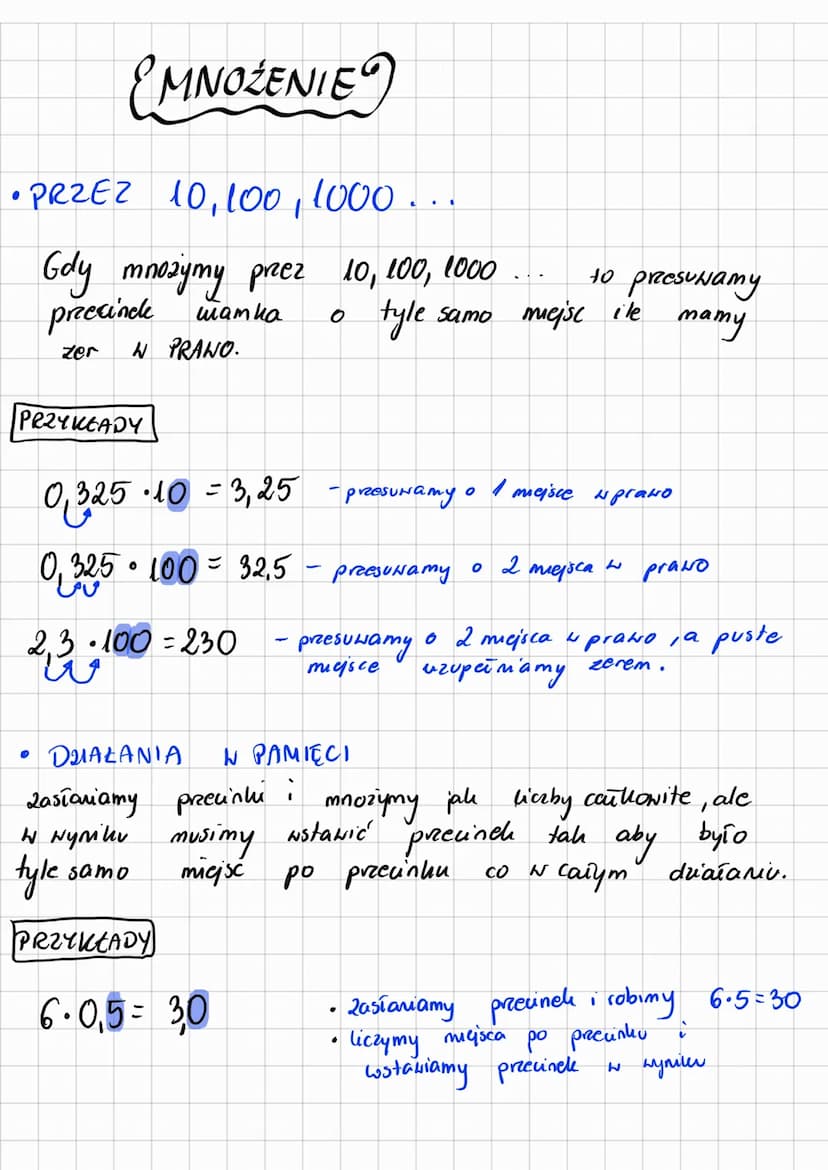 MNOŻENIE
• PRZEZ 10,100,1000 ...
Gdy mnożymy przez 10, 100, 1000 ... to przesuwamy
przecinek o tyle samo miejsc ile mamy
zer W PRAWO.
PRZYKŁADY
0,325 · 10 = 3,25 - przesuwamy o 1 miejsce w prawo
0,325 · 100 = 32,5 - przesuwamy o 2 miejsca w prawo
2,3 · 100 = 230 - przesuwamy o 2 miejsca w prawo, a puste
miejsce uzupełniamy zerem.
• DZIAŁANIA W PAMIĘCI
Zasłaniamy przecinki i mnożymy jak liczby całkowite, ale
w wyniku musimy wstawić przecinek tak aby było
tyle samo miejsc po przecinku co w całym działaniu.
PRZYKŁADY
6 · 0,5 = 3,0
• zasłaniamy przecinek i robimy 6·5=30
• liczymy miejsca po przecinku i
wstawiamy przecinek w wyniku